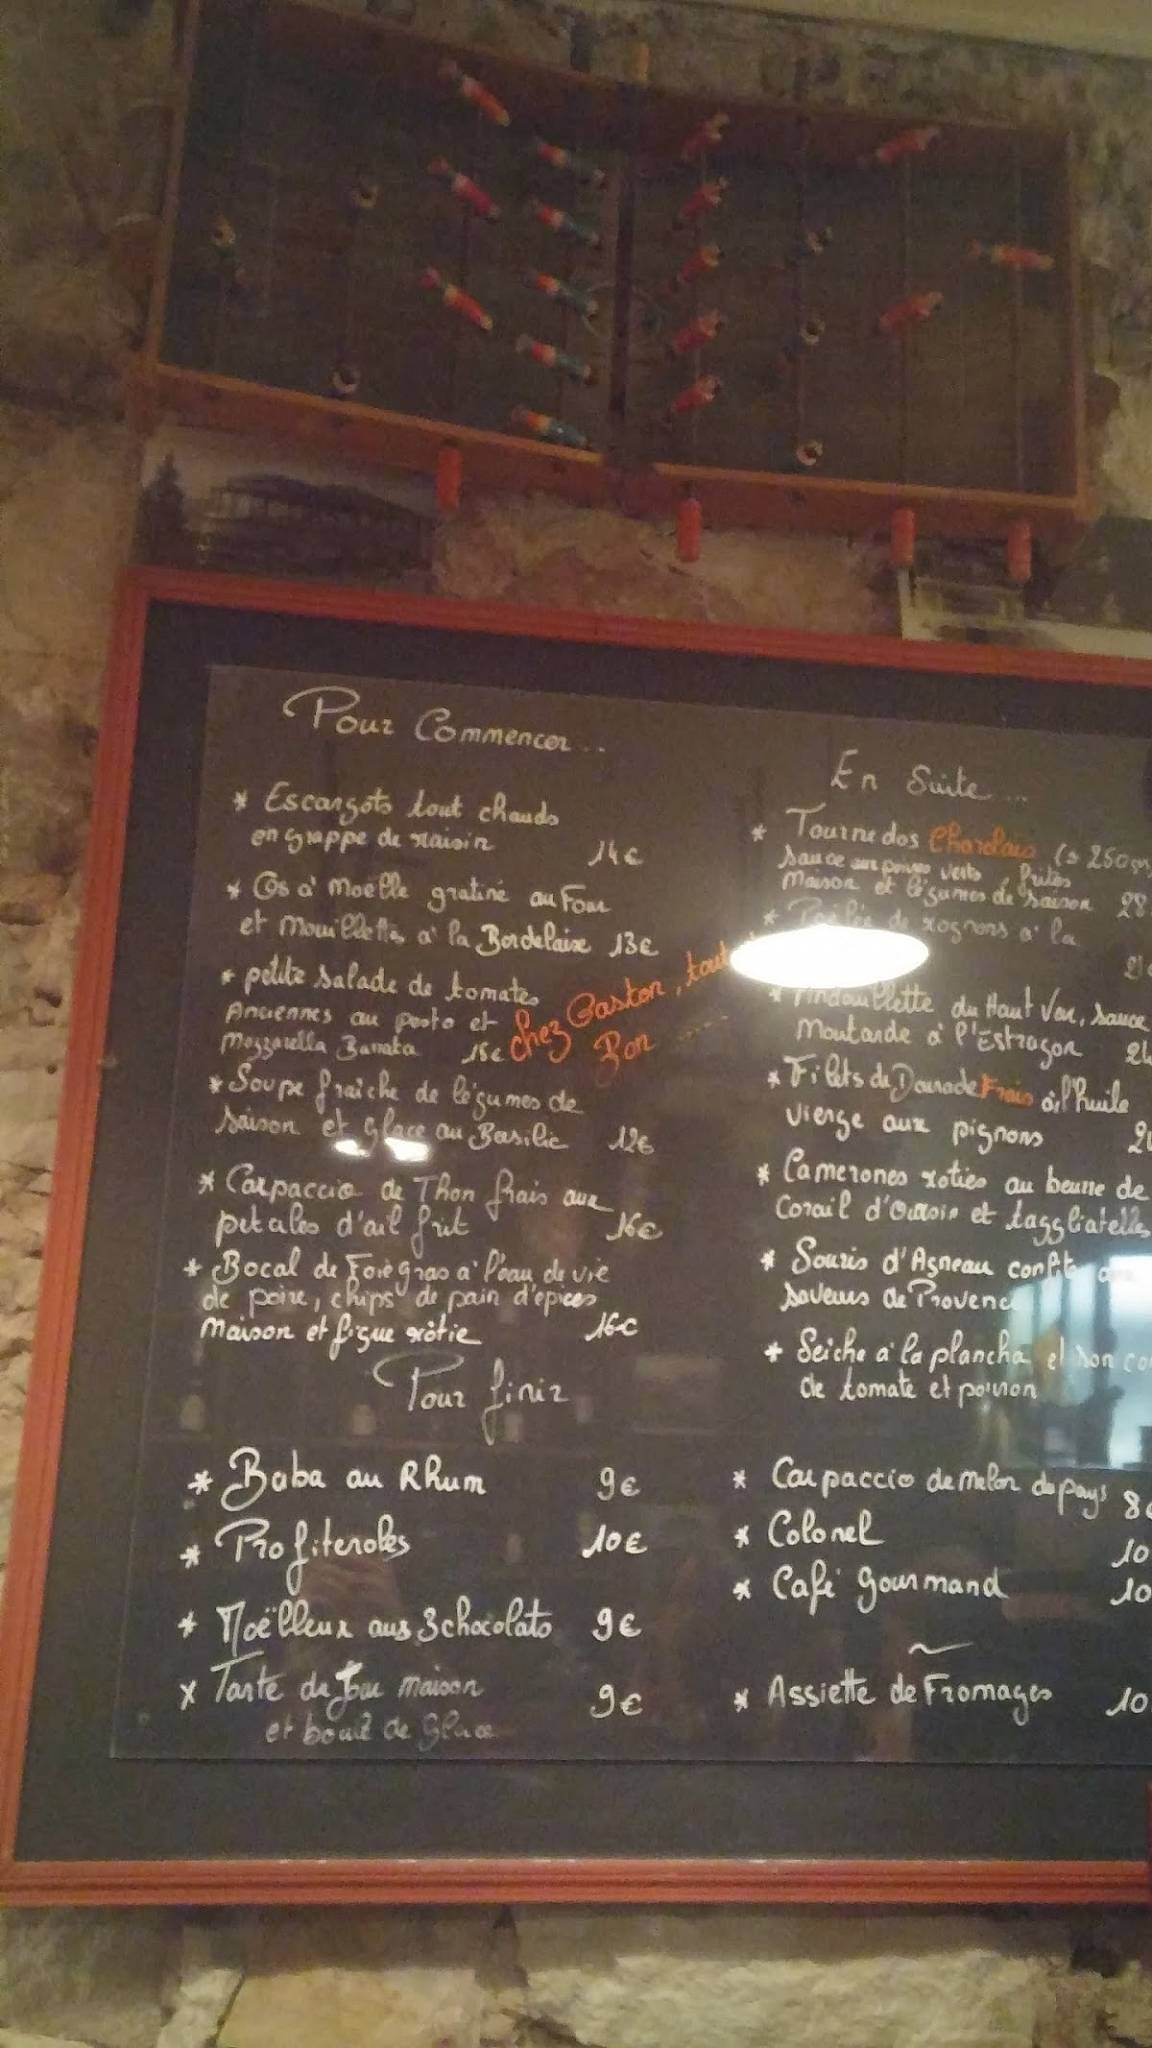 Pour Commencer...
* Escargots tout chauds
en grappe de raisin 14€
* Os à Moëlle gratiné au Four
et Mouillettes à la Bordelaise 13€
* petite salade de tomates
Anciennes au pesto et
Mozzarella Burrata 15€
chez Gaston, tout
Bon .....
* Soupe fraîche de légumes de
saison et glace au Basilic 12€
* Carpaccio de Thon frais aux
petales d'ail frit 16€
* Bocal de Foie gras à l'eau de vie
de poire, chips de pain d'épices
Maison et figue rôtie 16€
En Suite...
* Tournedos Charolais 250
sauce aux poivres verts, frites
Maison et légumes de saison 28
* Poêlée de rognons à la
* Andouillette du Haut Var, sauce
Moutarde à l'Estragon
* Filets de Daurade Frais à l'huile
vierge aux pignons
* Camerones roties au beurre de
Corail d'Oursin et taggliatelles
* Souris d'Agneau confite
saveurs de Provence
* Seiche à la plancha et son
de tomate et poivron
Pour finir
* Baba au Rhum 9€
* Profiteroles 10€
* Moëlleux aux 3 chocolats 9€
* Tarte du Jour Maison
et boule de Glace 9€
* Carpaccio de Melon du pays 8
* Colonel 10
* Café Gourmand 10
~
* Assiette de Fromages 10